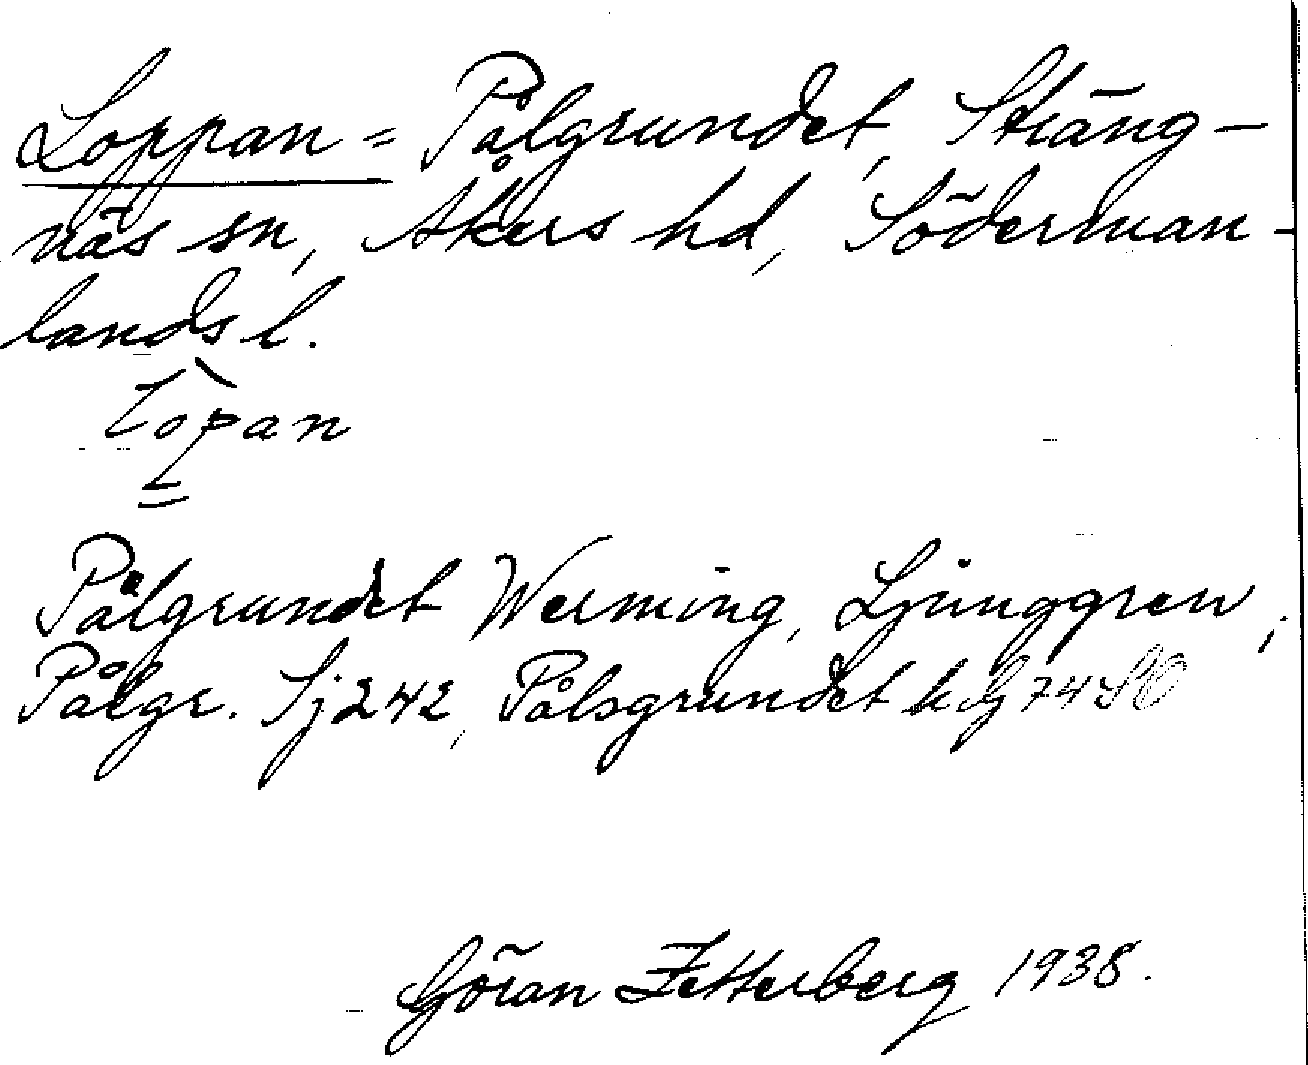 Loppan = Pålgrundet, Sträng-
näs sn, Åkers hd, Söderman-
lands l.
lòpan
Pålgrundet Werming, Ljunggren,;
Pålgr. Sj 242, Pålsgrundet k.G 74 SO
Göran Zetterberg 1938.